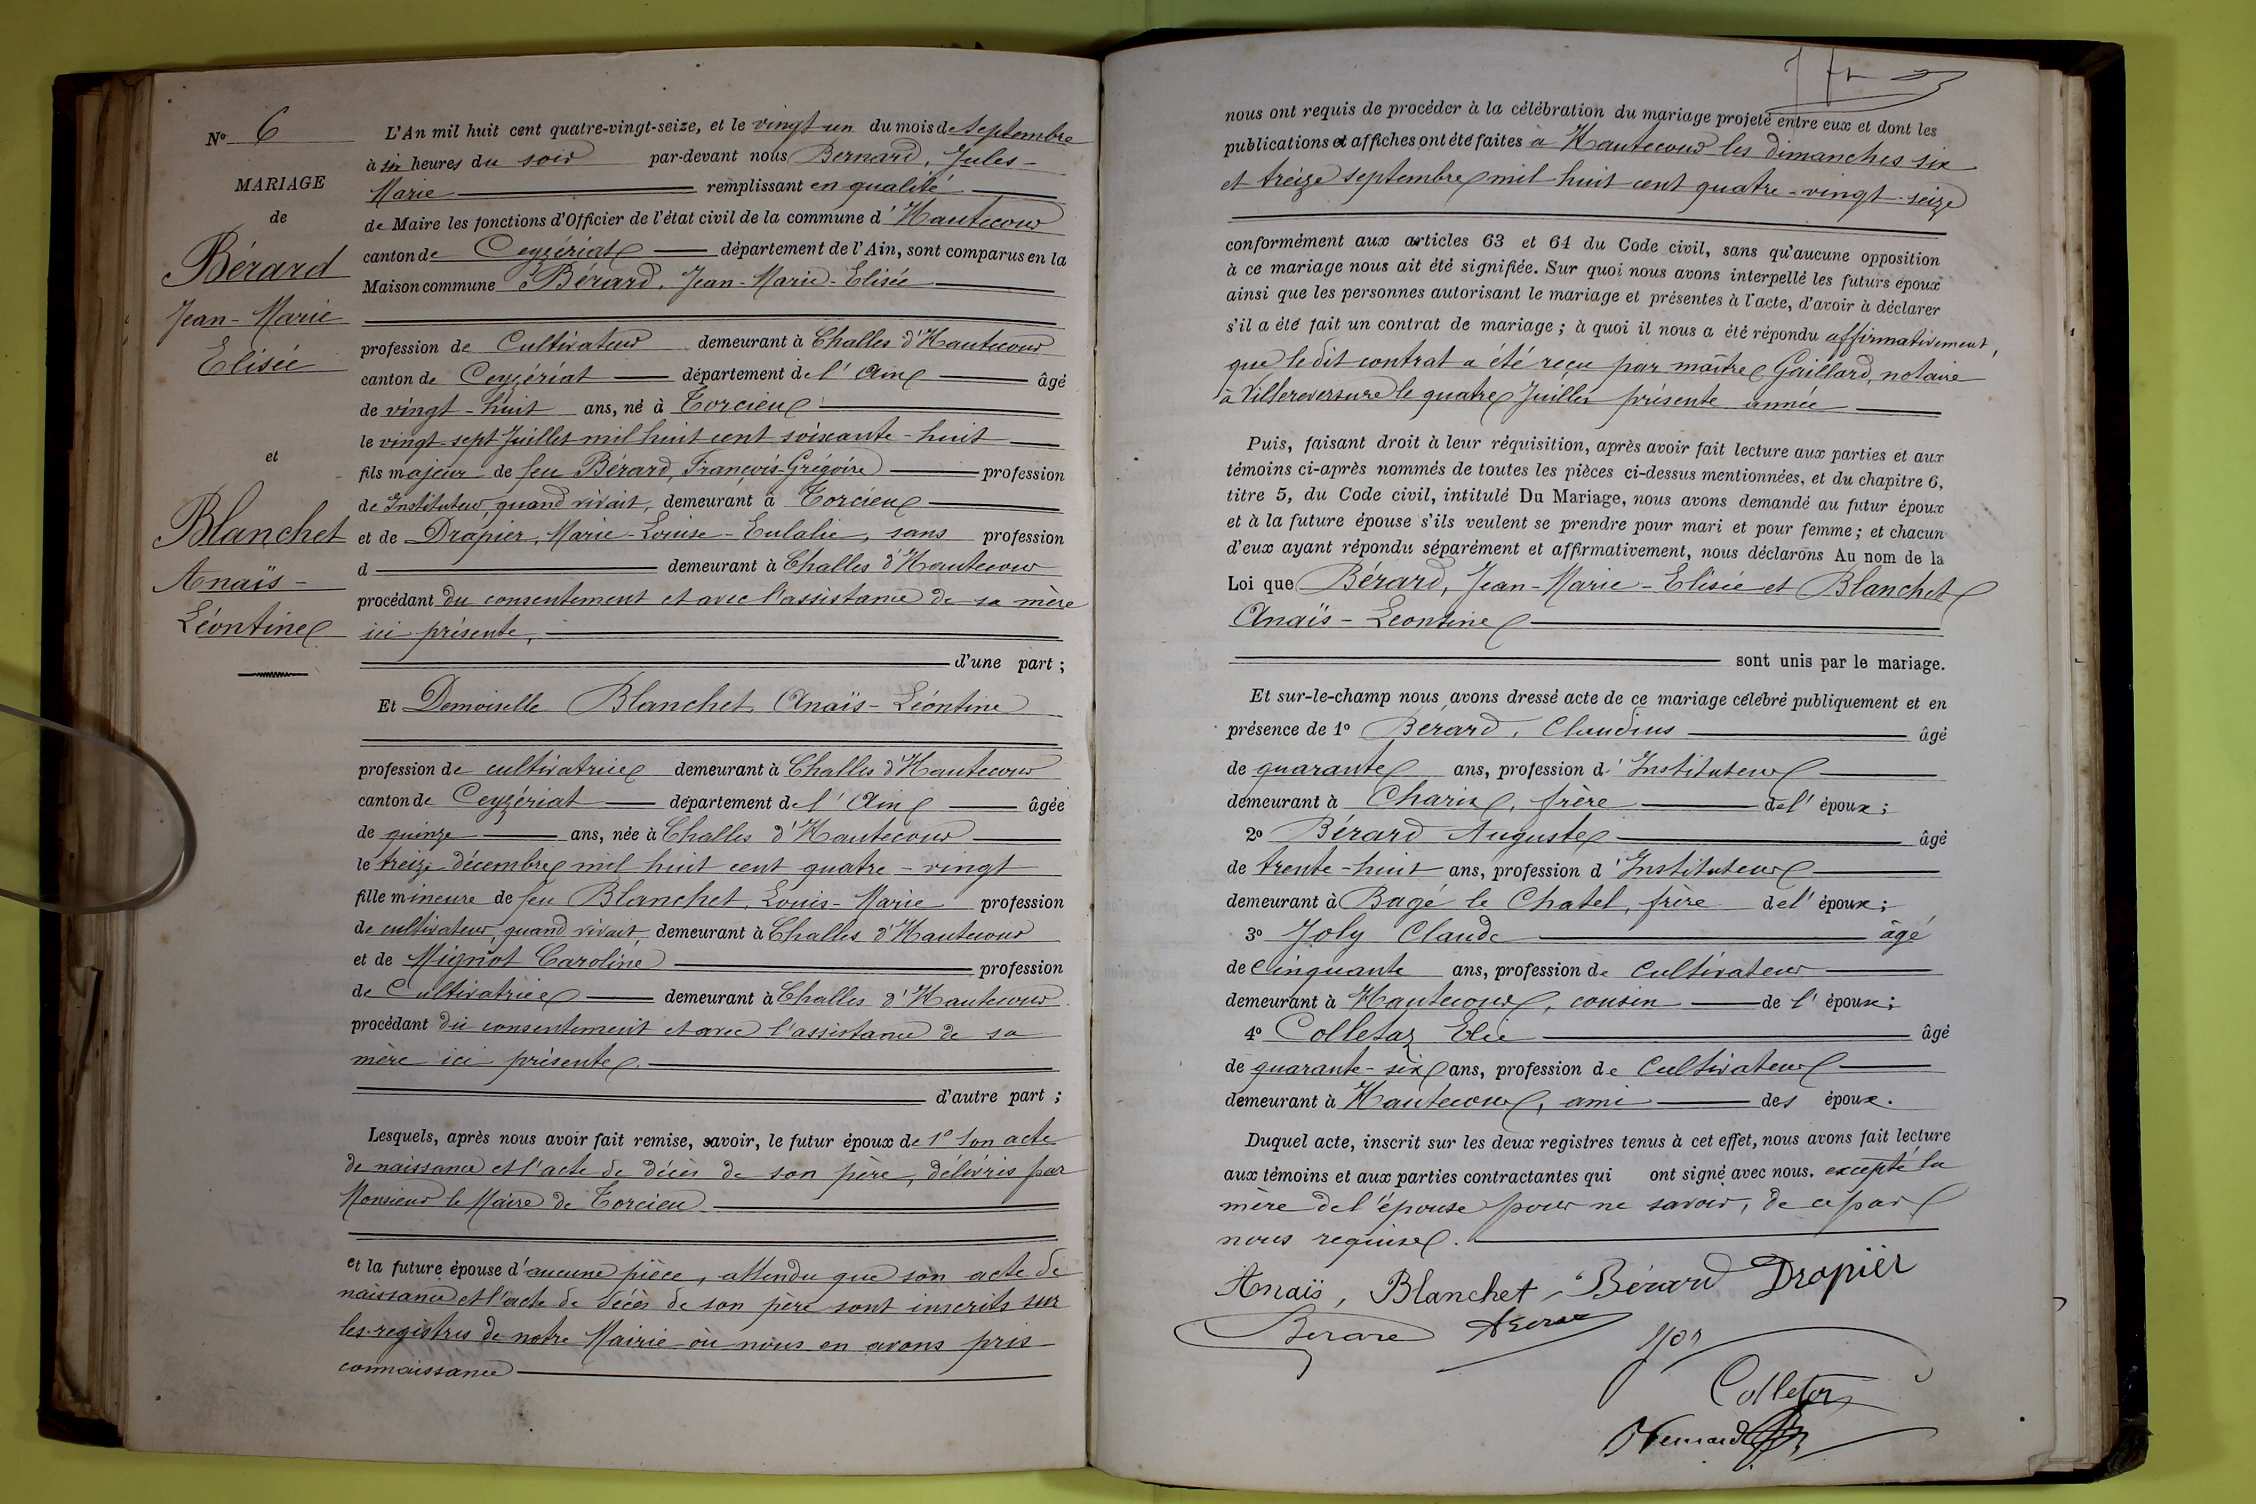 N° 6
MARIAGE
de
Bérard
Jean-Marie
Elisée
et
Blanchet
Anaïs-
Léontine
L'An mil huit cent quatre-vingt-seize, et le vingt-un du mois de Septembre
à six heures du soir par-devant nous Bernard, Jules-
Marie remplissant en qualité
de Maire les fonctions d'Officier de l'état civil de la commune d'Hautecour
canton de Ceyzériat département de l'Ain, sont comparus en la
Maison commune Bérard, Jean-Marie-Elisée
profession de Cultivateur demeurant à Challes d'Hautecour
canton de Ceyzériat département de l'Ain âgé
de vingt-huit ans, né à Torcieu
le vingt-sept Juillet mil huit cent soixante-huit
fils majeur de feu Bérard, François-Grégoire profession
de Instituteur, quand vivait, demeurant à Torcieu
et de Drapier, Marie-Louise-Eulalie, sans profession
d demeurant à Challes d'Hautecour
procédant du consentement et avec l'assistance de sa mère
ici présente,
d'une part ;
Et Demoiselle Blanchet Anaïs-Léontine
profession de cultivatrice demeurant à Challes d'Hautecour
canton de Ceyzériat département de l'Ain âgée
de quinze ans, née à Challes d'Hautecour
le treize décembre mil huit cent quatre-vingt
fille mineure de feu Blanchet, Louis-Marie profession
de cultivateur, quand vivait, demeurant à Challes d'Hautecour
et de Migniot Caroline profession
de Cultivatrice demeurant à Challes d'Hautecour
procédant du consentement et avec l'assistance de sa
mère ici présente.
d'autre part ;
Lesquels, après nous avoir fait remise, savoir, le futur époux de 1° Son acte
de naissance et l'acte de décès de son père, délivrés par
Monsieur le Maire de Torcieu.
et la future épouse d'aucune pièce, attendu que son acte de
naissance et l'acte de décès de son père sont inscrits sur
les registres de notre Mairie où nous en avons pris
connaissance
nous ont requis de procéder à la célébration du mariage projeté entre eux et dont les
publications et affiches ont été faites à Hautecour les dimanches six
et treize septembre mil huit cent quatre-vingt-seize
conformément aux articles 63 et 64 du Code civil, sans qu'aucune opposition
à ce mariage nous ait été signifiée. Sur quoi nous avons interpellé les futurs époux
ainsi que les personnes autorisant le mariage et présentes à l'acte, d'avoir à déclarer
s'il a été fait un contrat de mariage ; à quoi il nous a été répondu affirmativement,
que le dit contrat a été reçu par maître Gaillard, notaire
à Villereversure le quatre Juillet présente année
Puis, faisant droit à leur réquisition, après avoir fait lecture aux parties et aux
témoins ci-après nommés de toutes les pièces ci-dessus mentionnées, et du chapitre 6,
titre 5, du Code civil, intitulé Du Mariage, nous avons demandé au futur époux
et à la future épouse s'ils veulent se prendre pour mari et pour femme ; et chacun
d'eux ayant répondu séparément et affirmativement, nous déclarons Au nom de la
Loi que Bérard, Jean-Marie-Elisée et Blanchet
Anaïs-Leontine
sont unis par le mariage.
Et sur-le-champ nous avons dressé acte de ce mariage célébré publiquement et en
présence de 1° Berard, Claudius âgé
de quarante ans, profession d'Instituteur
demeurant à Charix, frère de l'époux ;
2° Bérard Auguste âgé
de trente-huit ans, profession d'Instituteur
demeurant à Bagé le Chatel, frère de l'époux ;
3° Joly Claude âgé
de Cinquante ans, profession de Cultivateur
demeurant à Hautecour, cousin de l'époux ;
4° Colletaz Elie âgé
de quarante-six ans, profession de Cultivateur
demeurant à Hautecour, ami des époux.
Duquel acte, inscrit sur les deux registres tenus à cet effet, nous avons fait lecture
aux témoins et aux parties contractantes qui ont signé avec nous. excepté la
mère de l'épouse pour ne savoir, de ce par
nous requise.
Anaïs, Blanchet Bérard Drapier
Berard
Colletaz
Bernard